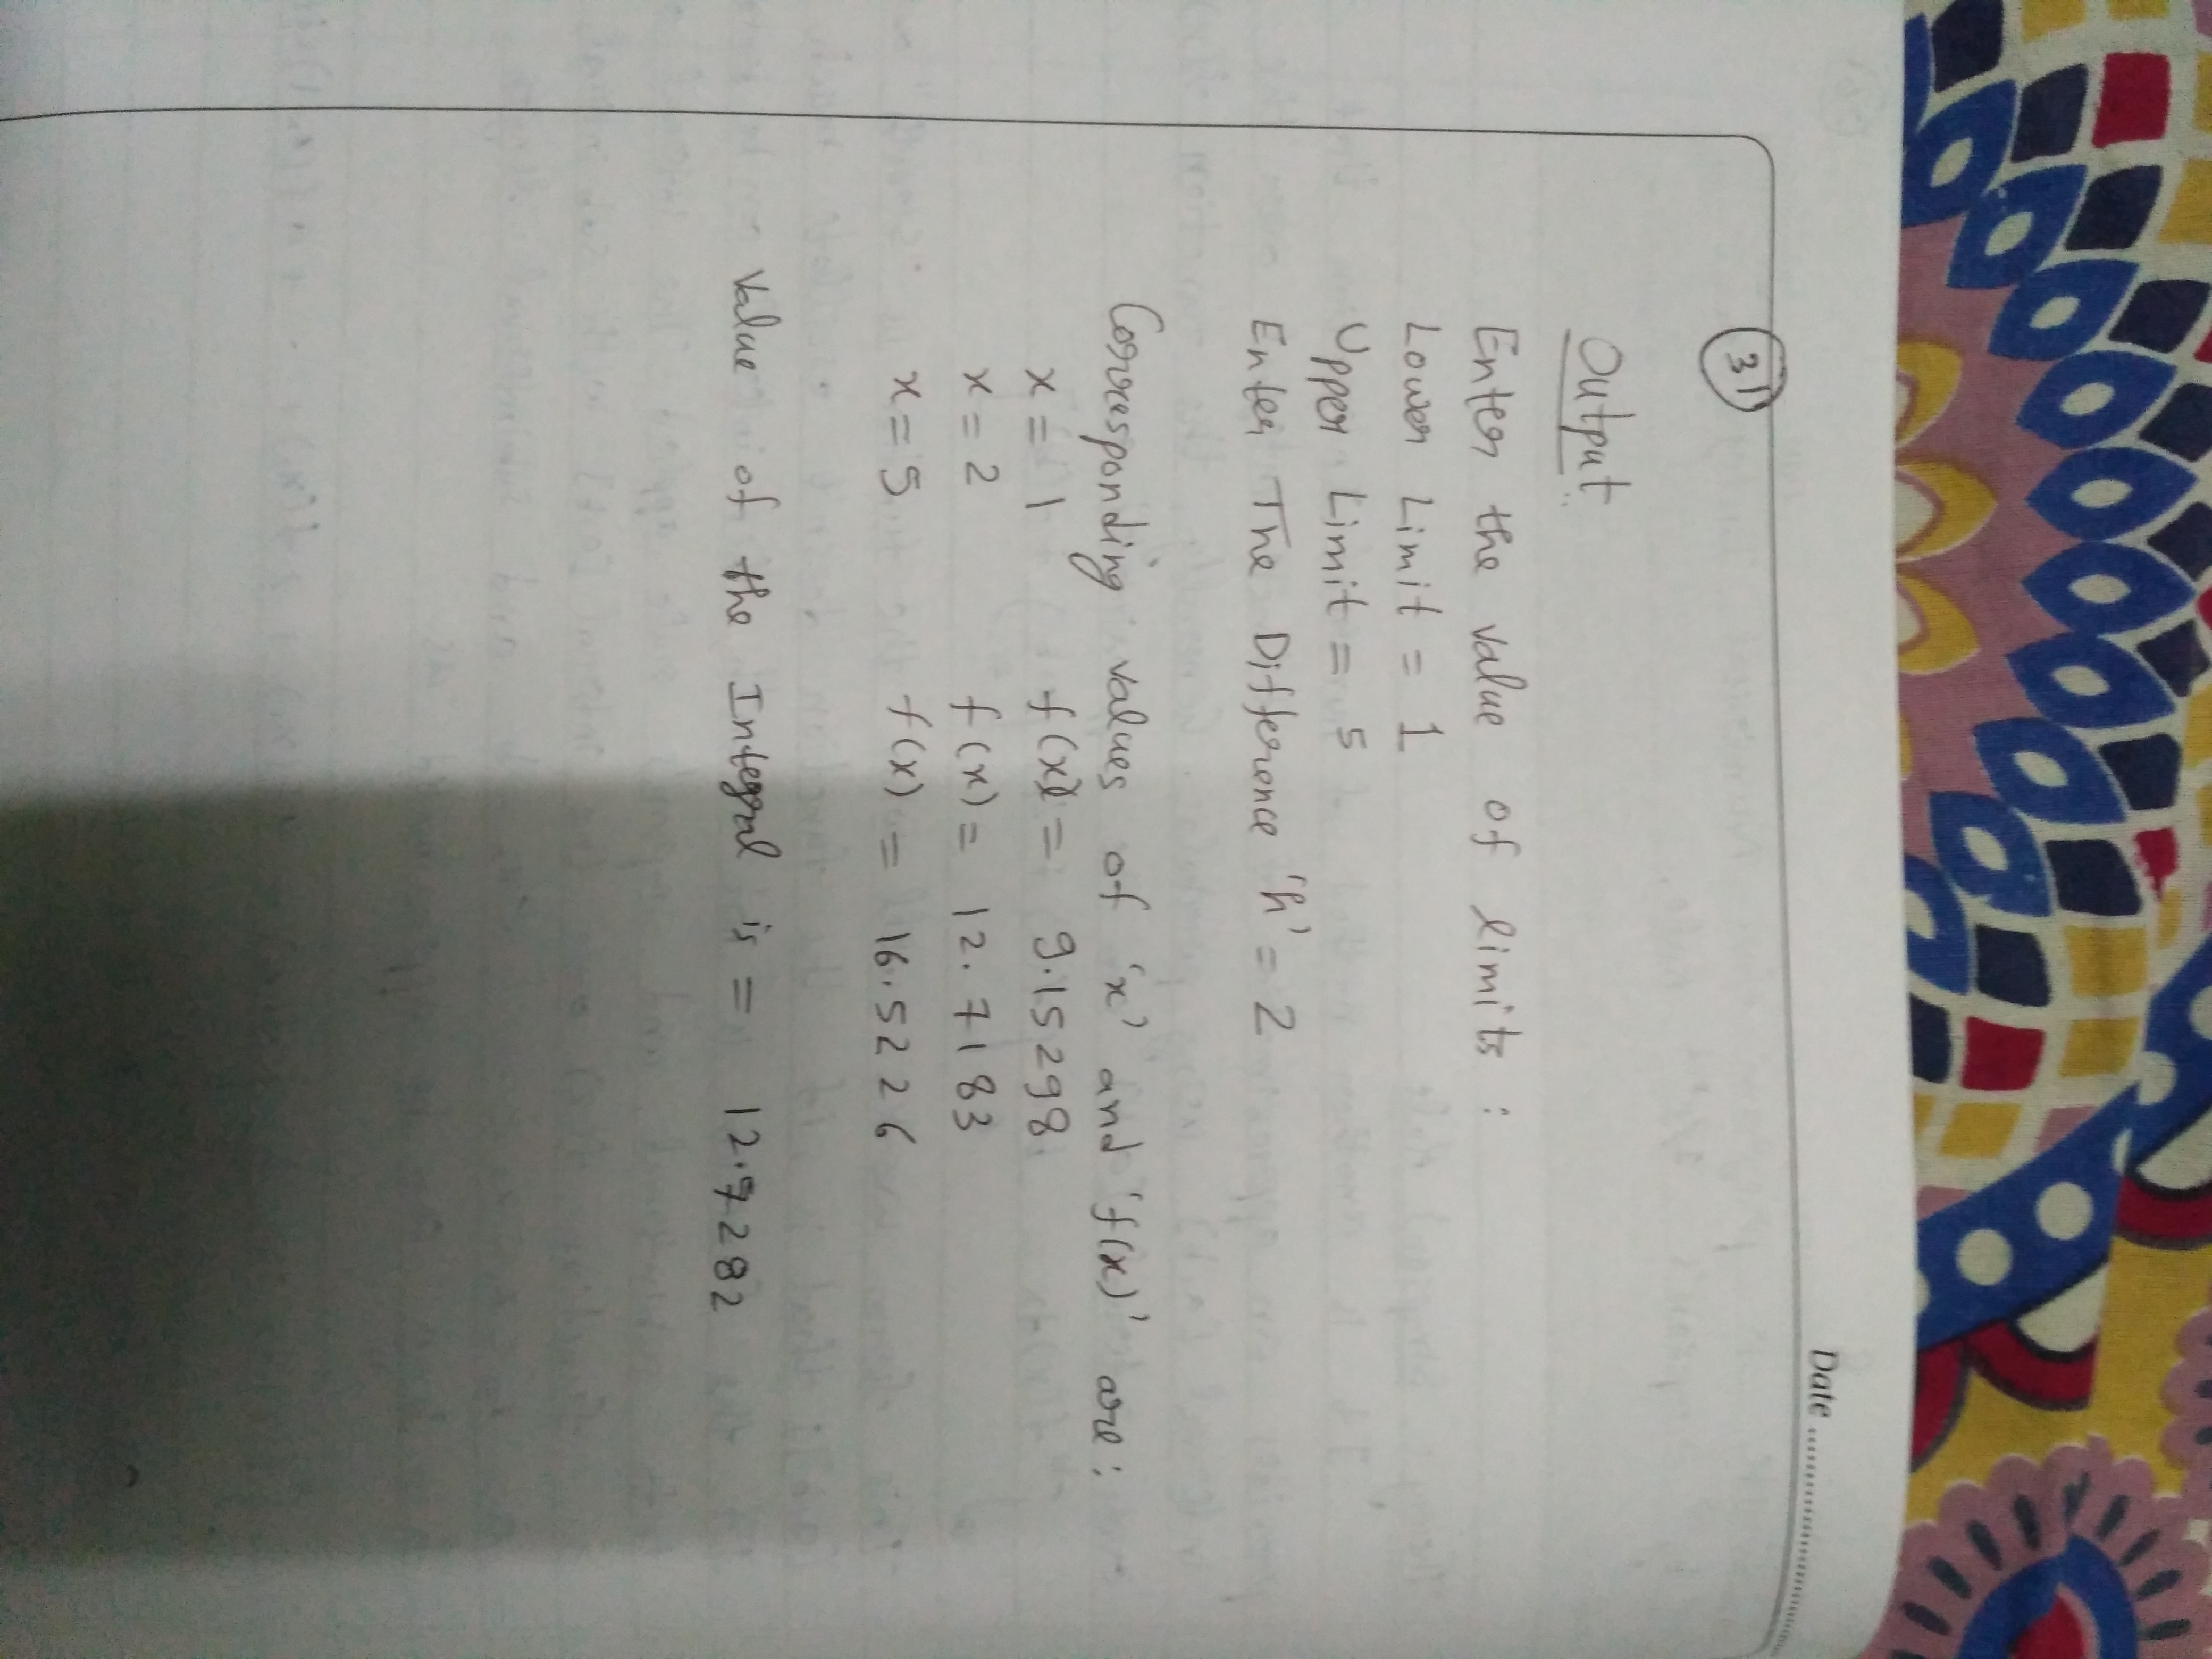 Date
31
Output
Enter the value of limits :
Lower Limit = 1
Upper Limit = 5
Enter The Difference 'h' = 2
Corresponding values of 'x' and 'f(x)' are :
x = 1 f(x) = 9.15298
x = 2 f(x) = 12.7183
x = 5 f(x) = 16.5226
Value of the Integral is = 12.7282